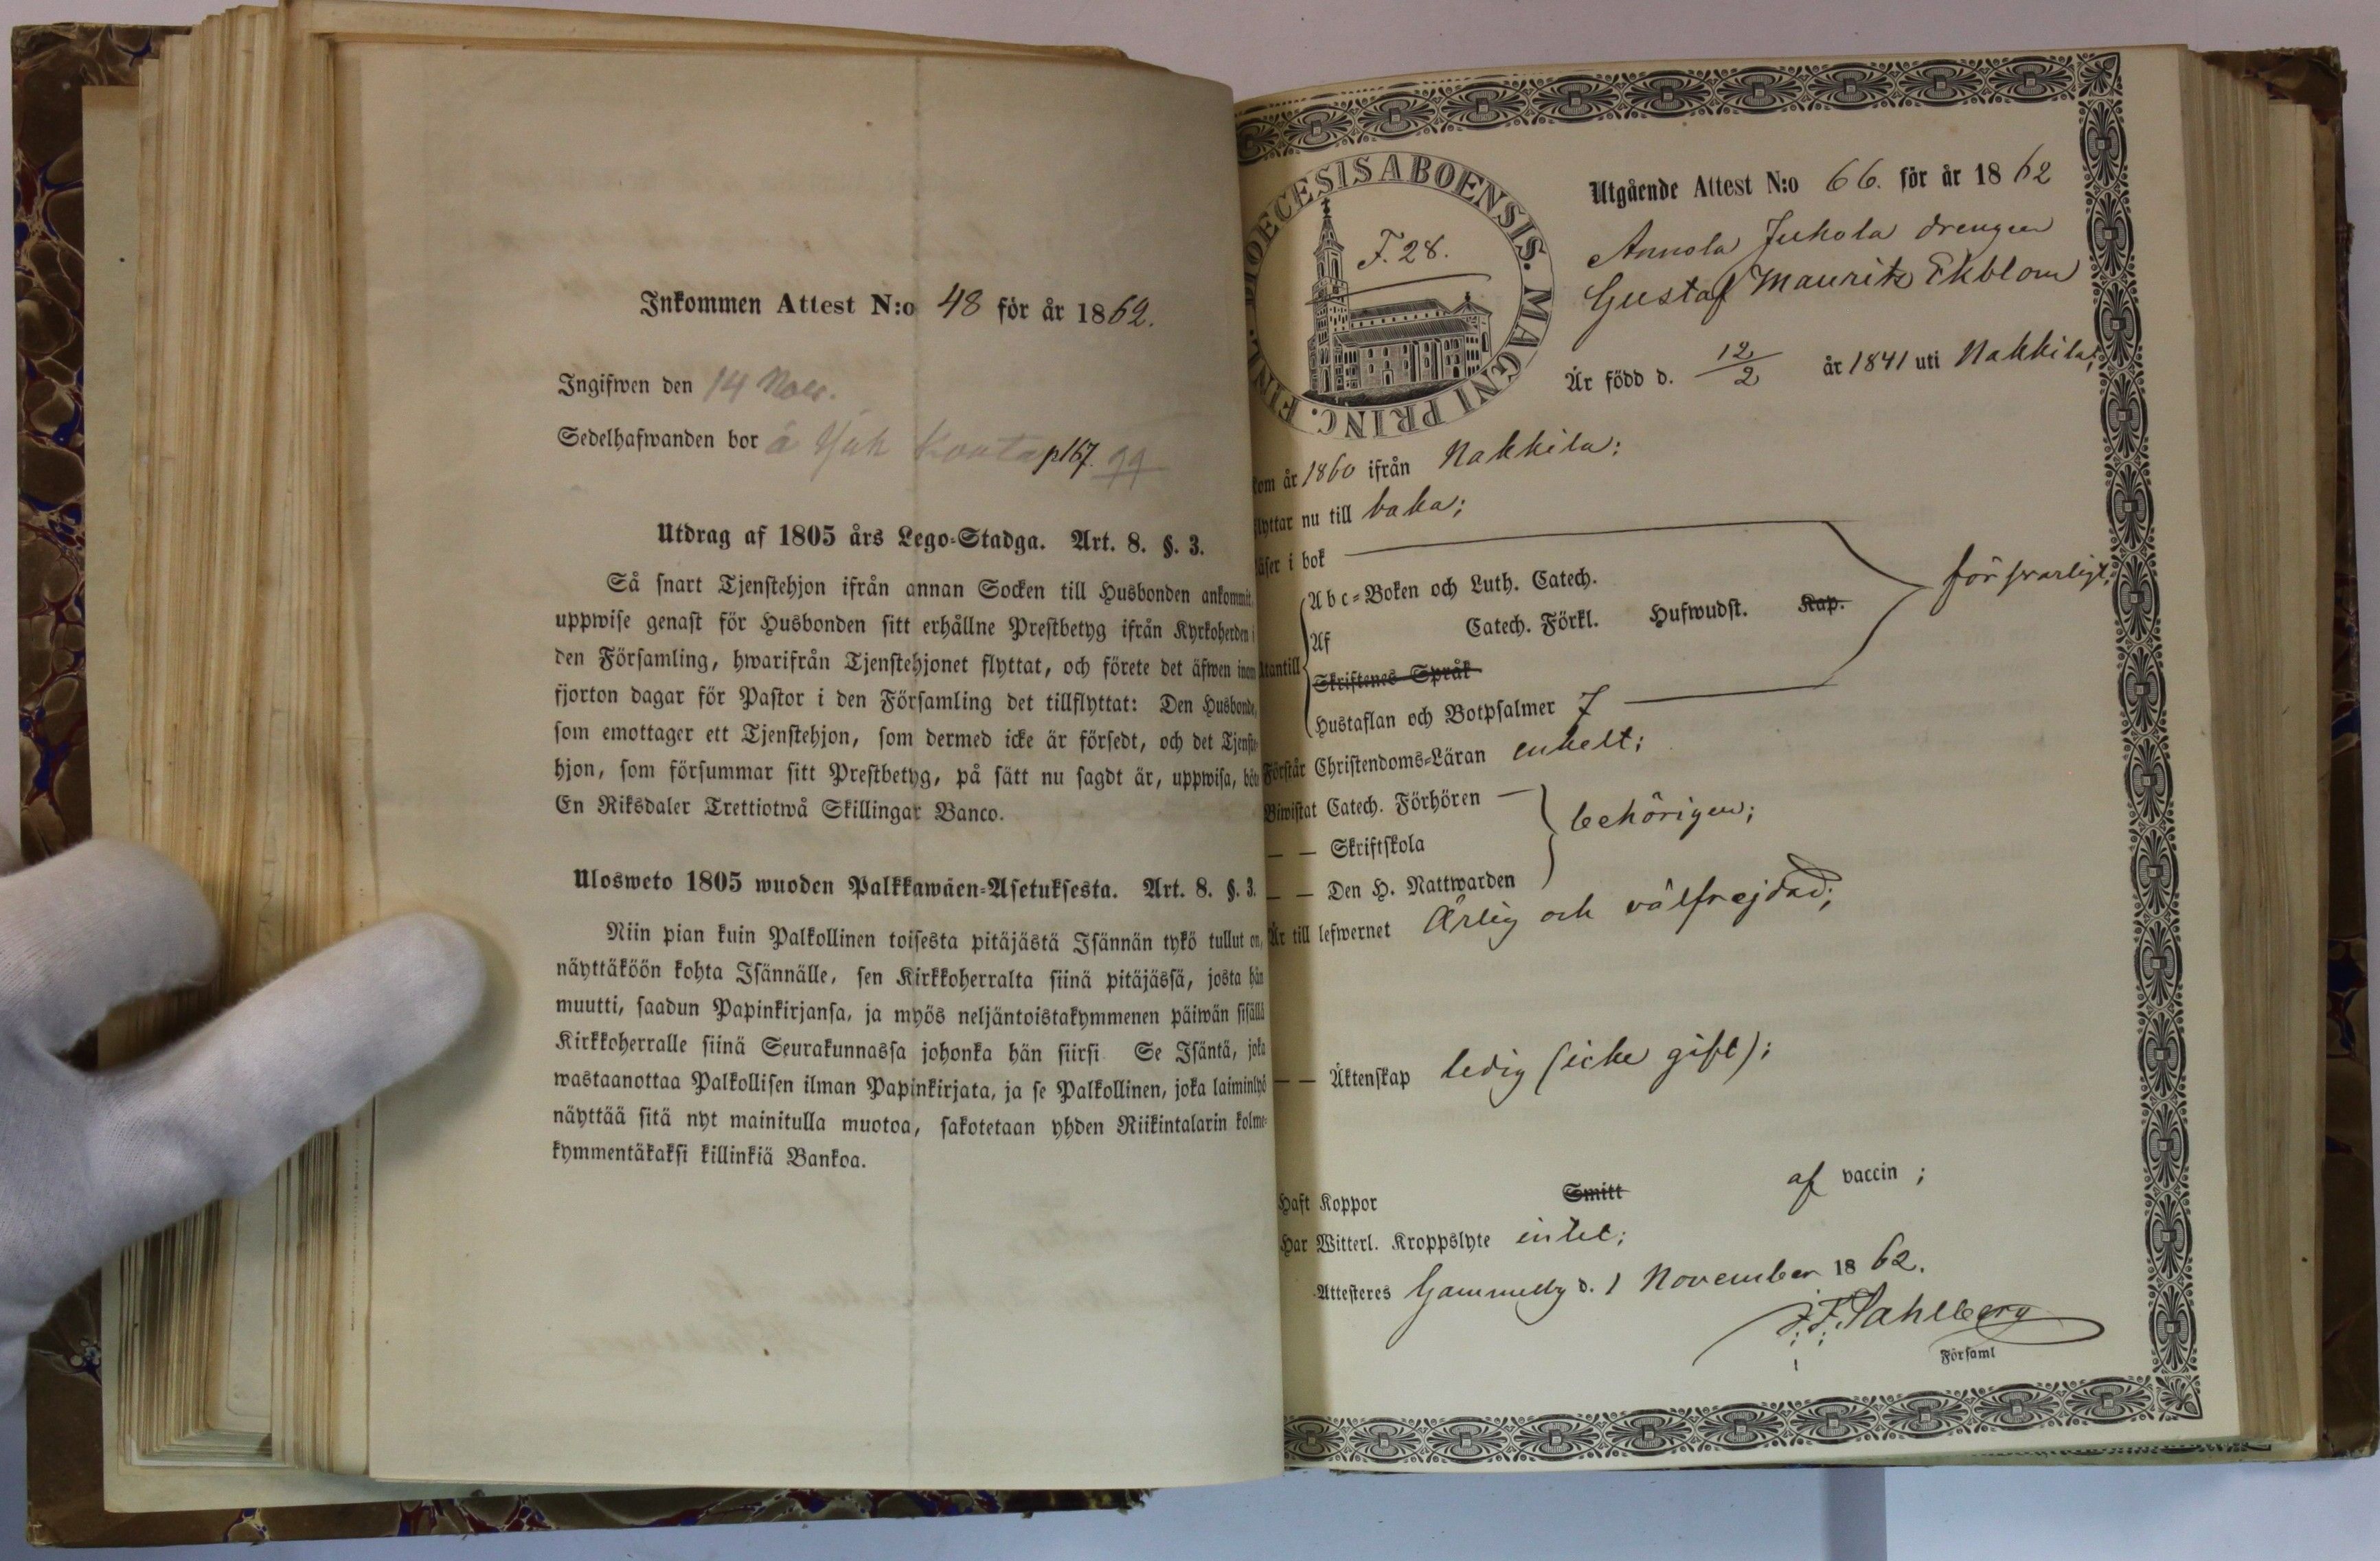 Inkommen Attest N:o 48 för år 1862.
Ingifwen den 14 Nov.
Sedelhafwanden bor å p167. 99
Utdrag af 1805 års Lego-Stadga. Art. 8. §. 3.
Så snart Tjenstehjon ifrån annan Socken till Husbonden ankommit,
uppwise genast för Husbonden sitt erhållne Prestbetyg ifrån Kyrkoherden i
den Församling, hwarifrån Tjenstehjonet flyttat, och förete det äfwen inom
fjorton dagar för Pastor i den Församling det tillflyttat: Den Husbonde,
som emottager ett Tjenstehjon, som dermed icke är försedt, och det Tjenste-
hjon, som försummar sitt Prestbetyg, på sätt nu sagdt är, uppwisa, böte
En Riksdaler Trettiotwå Skillingar Banco.
Ulosweto 1805 wuoden Palkkawäen-Asetuksesta. Art. 8. §. 3.
Niin pian kuin Palkollinen toisesta pitäjästä Isännän tykö tullut on,
näyttäköön kohta Isännälle, sen Kirkkoherralta siinä pitäjässä, josta hän
muutti, saadun Papinkirjansa, ja myös neljäntoistakymmenen päiwän sisällä
Kirkkoherralle siinä Seurakunnassa johonka hän siirsi Se Isäntä, joka
wastaanottaa Palkollisen ilman Papinkirjata, ja se Palkollinen, joka laiminlyö
näyttää sitä nyt mainitulla muotoa, sakotetaan yhden Riikintalarin kolme-
kymmentäkaksi killinkiä Bankoa.
DIOECESIS ABOENSIS. MAGNI PRINC. FINL.
F. 28.
Utgående Attest N:o 66. för år 1862
Annola Juhola drengen
Gustaf Mauritz Ekblom
Är född d. 12/2 år 1841 uti Nakkila;
kom år 1860 ifrån Nakkila;
flyttar nu till baka;
läser i bok
Abc-Boken och Luth. Catech.
Af Catech. Förkl. Hufwudst. Kap. försvarligt;
Utantill
Skriftenes Språk
Hustaflan och Botpsalmer 7
Förstår Christendoms-Läran enkelt;
Biwistat Catech. Förhören
— — Skriftskola behörigen;
— — Den H. Nattwarden
Är till lefwernet Ärlig och välfrejdad;
— — Äktenskap ledig (icke gift);
Haft Koppor Smitt af vaccin;
Har Witterl. Kroppslyte intet;
Attesteres Gammelby d. 1 November 1862.
J. F. Sahlberg
Församl